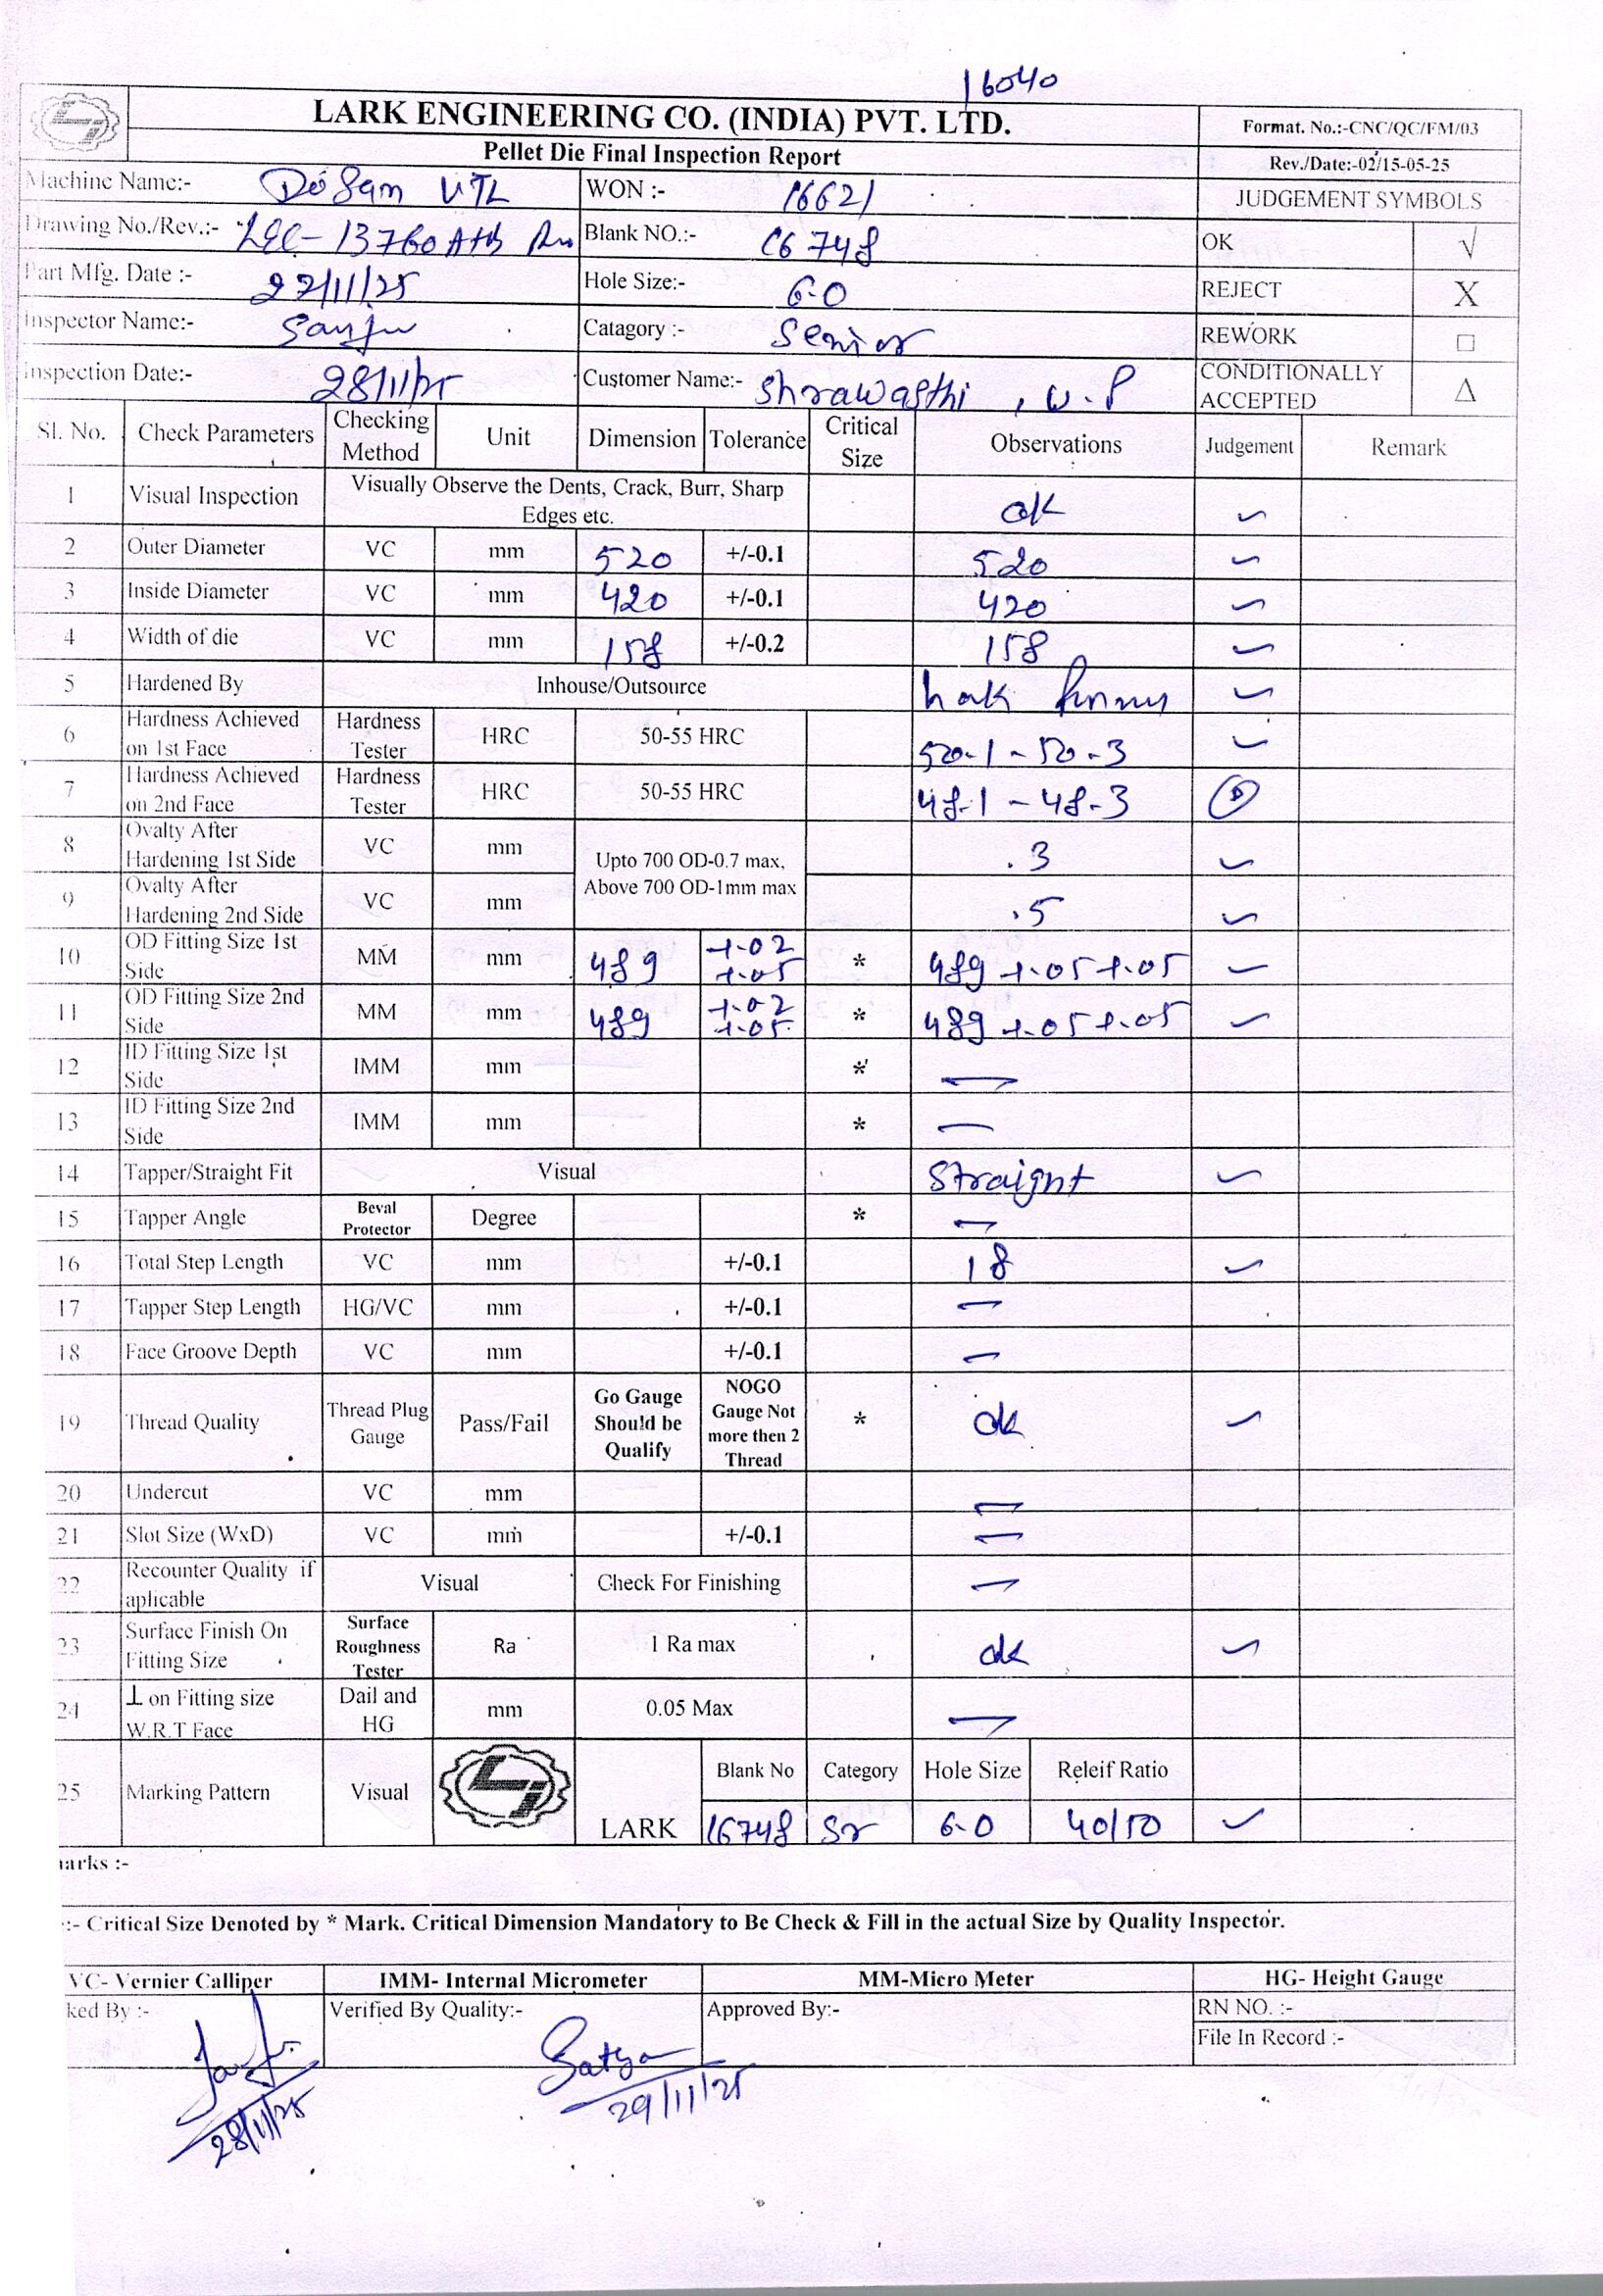 16040
LARK ENGINEERING CO. (INDIA) PVT. LTD. Format. No.:-CNC/QC/FM/03
Pellet Die Final Inspection Report Rev./Date:-02/15-05-25
Machine Name:- VTL WON :- 16621 JUDGEMENT SYMBOLS
Drawing No./Rev.:- LEC-13760 Blank NO.:- 16748 OK √
Part Mfg. Date :- 27/11/25 Hole Size:- 6.0 REJECT X
Inspector Name:- Sanju Catagory :- Senior REWORK □
Inspection Date:- 28/11/25 Customer Name:- Shrawasthi, U.P CONDITIONALLY ACCEPTED Δ
Sl. No. Check Parameters Checking Method Unit Dimension Tolerance Critical Size Observations Judgement Remark
1 Visual Inspection Visually Observe the Dents, Crack, Burr, Sharp Edges etc. ok ✓
2 Outer Diameter VC mm 520 +/-0.1 520 ✓
3 Inside Diameter VC mm 420 +/-0.1 420 ✓
4 Width of die VC mm 158 +/-0.2 158 ✓
5 Hardened By Inhouse/Outsource ✓
6 Hardness Achieved on 1st Face Hardness Tester HRC 50-55 HRC 50.1 - 50.3 ✓
7 Hardness Achieved on 2nd Face Hardness Tester HRC 50-55 HRC 48.1 - 48.3
8 Ovalty After Hardening 1st Side VC mm Upto 700 OD-0.7 max, Above 700 OD-1mm max .3 ✓
9 Ovalty After Hardening 2nd Side VC mm .5 ✓
10 OD Fitting Size 1st Side MM mm 489 +.02 +.05 * 489 +.05 +.05 ✓
11 OD Fitting Size 2nd Side MM mm 489 +.02 +.05 * 489 +.05 +.05 ✓
12 ID Fitting Size 1st Side IMM mm * —
13 ID Fitting Size 2nd Side IMM mm * —
14 Tapper/Straight Fit Visual Straight ✓
15 Tapper Angle Beval Protector Degree * —
16 Total Step Length VC mm +/-0.1 18 ✓
17 Tapper Step Length HG/VC mm +/-0.1 —
18 Face Groove Depth VC mm +/-0.1 —
19 Thread Quality Thread Plug Gauge Pass/Fail Go Gauge Should be Qualify NOGO Gauge Not more then 2 Thread * ok ✓
20 Undercut VC mm —
21 Slot Size (WxD) VC mm +/-0.1 —
22 Recounter Quality if aplicable Visual Check For Finishing —
23 Surface Finish On Fitting Size Surface Roughness Tester Ra 1 Ra max ok ✓
24 ⊥ on Fitting size W.R.T Face Dail and HG mm 0.05 Max —
25 Marking Pattern Visual LARK Blank No Category Hole Size Releif Ratio
16748 Sr 6.0 40/50 ✓
arks :-
:- Critical Size Denoted by * Mark. Critical Dimension Mandatory to Be Check & Fill in the actual Size by Quality Inspector.
VC- Vernier Calliper IMM- Internal Micrometer MM-Micro Meter HG- Height Gauge
ked By :- Verified By Quality:- Approved By:- RN NO. :-
File In Record :-
Satya
28/11/25 29/11/25